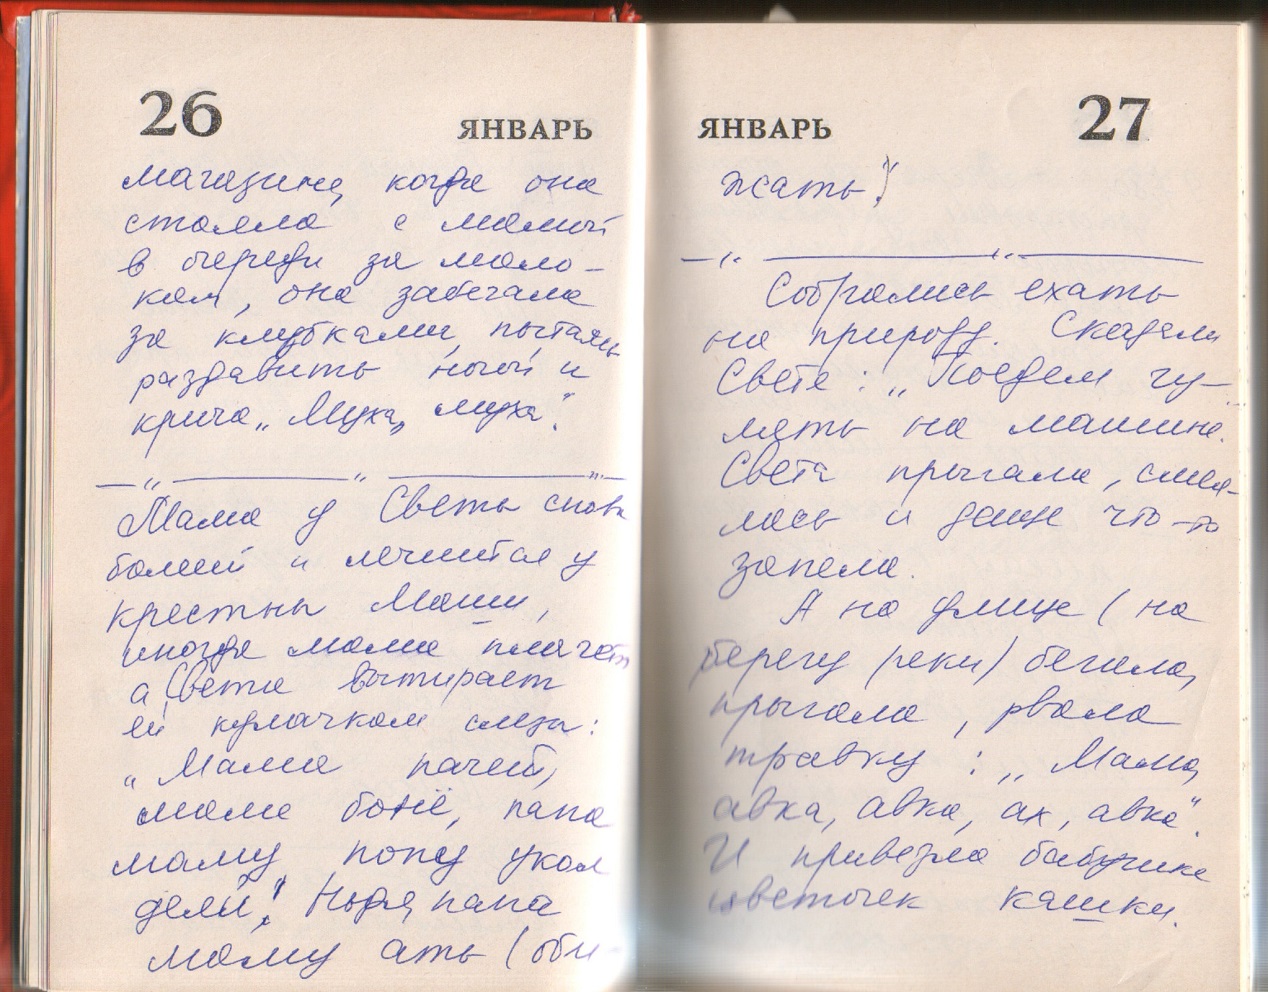 26 ЯНВАРЬ
магазине, когда она
стояла с мамой
в очереди за моло-
ком, она забегала
за клубками, пытаясь
раздавить ногой и
крича „Муха, муха".
Мама у Светы снова
болеет и лечится у
крестны Маши,
иногда мама плачет
а Света вытирает
ей кулачком слезы:
„Мама пачеть,
маме боне, папа
маму попу укол
делй"! Нызя, папа
маму ать (оби-
ЯНВАРЬ 27
жать)
Собрались ехать
на природу. Сказали
Свете: „Поедем гу-
лять на машине.
Света прыгала, смея-
лась и даже что-то
запела.
А на улице (на
берегу реки) бегала,
прыгала, рвала
травку: „Мама,
авка, авка, ах, авка".
И привезла бабушке
цветочек кашки.